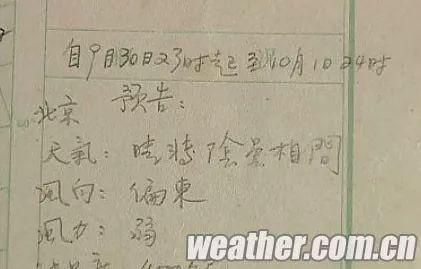 自9月30日23时起至10月1日24时
北京 预告：
天氣：晴转陰暈相間
风向：偏東
风力：弱
weather.com.cn